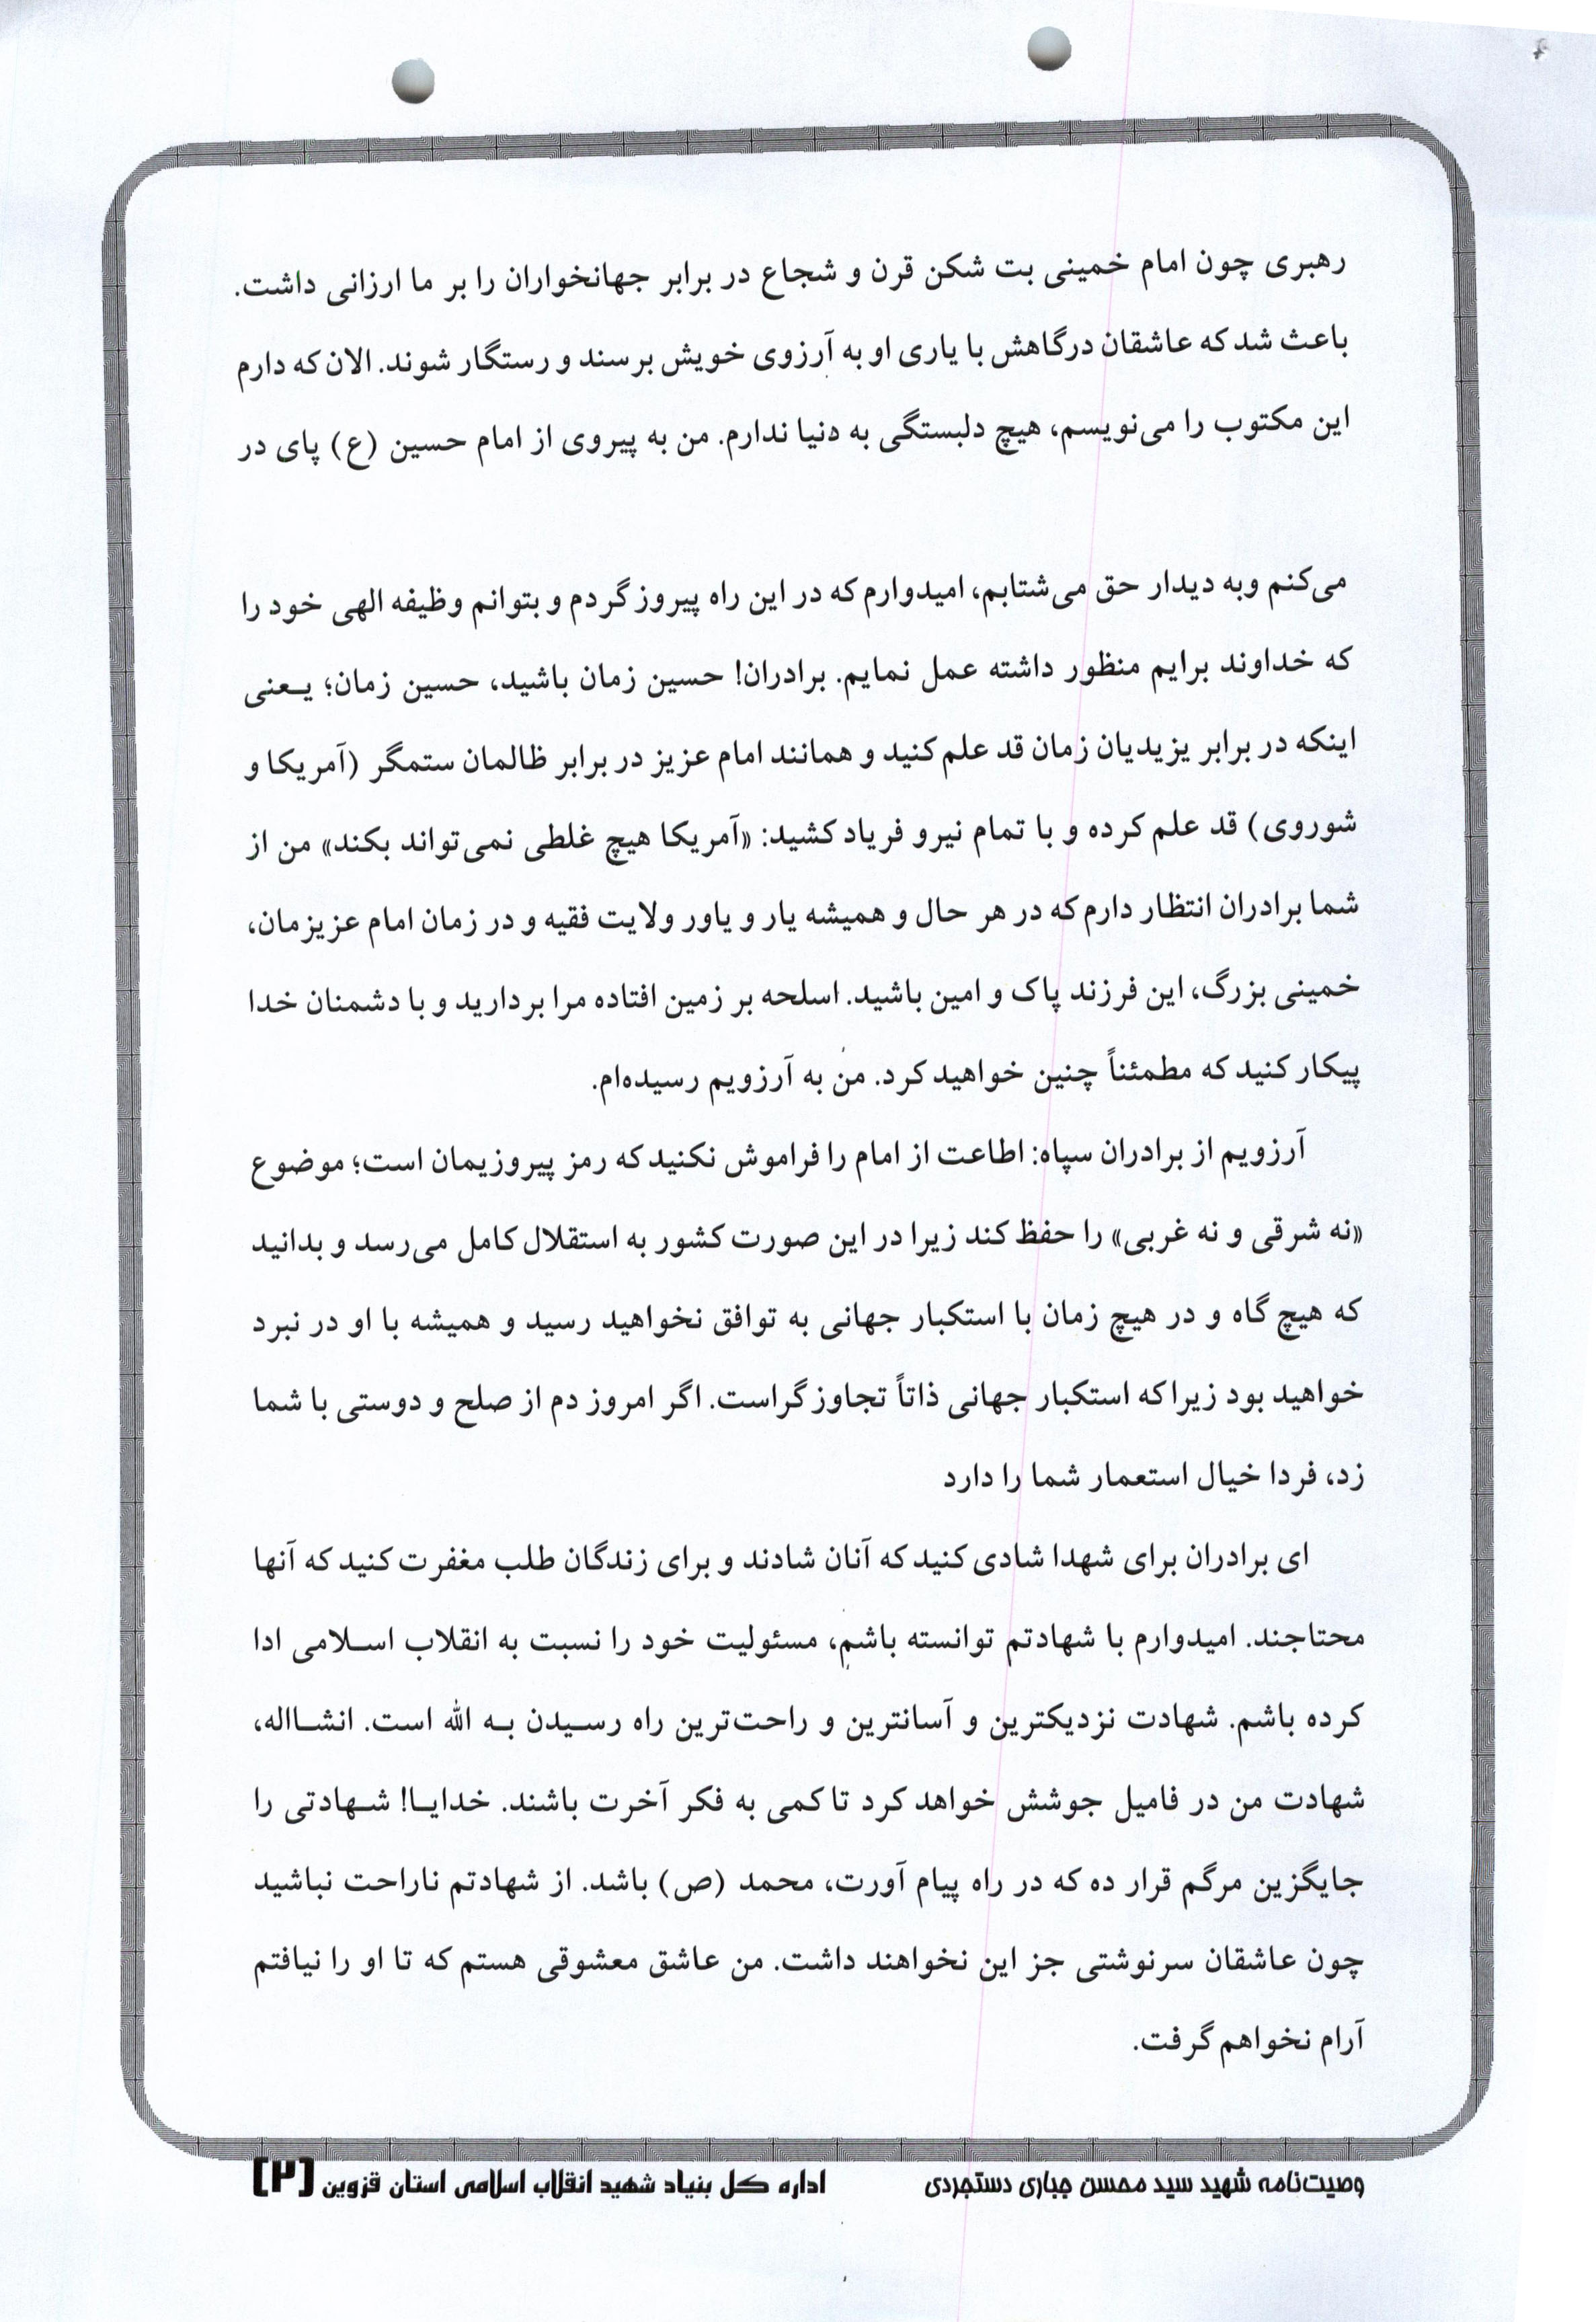 رهبری چون امام خمینی بت شکن قرن و شجاع در برابر جهانخواران را بر ما ارزانی داشت.
باعث شد که عاشقان درگاهش با یاری او به آرزوی خویش برسند و رستگار شوند. الان که دارم
این مکتوب را می‌نویسم، هیچ دلبستگی به دنیا ندارم. من به پیروی از امام حسین (ع) پای در
می‌کنم وبه دیدار حق می‌شتابم، امیدوارم که در این راه پیروز گردم و بتوانم وظیفه الهی خود را
که خداوند برایم منظور داشته عمل نمایم. برادران! حسین زمان باشید، حسین زمان؛ یـعنی
اینکه در برابر یزیدیان زمان قد علم کنید و همانند امام عزیز در برابر ظالمان ستمگر (آمریکا و
شوروی) قد علم کرده و با تمام نیرو فریاد کشید: «آمریکا هیچ غلطی نمی‌تواند بکند» من از
شما برادران انتظار دارم که در هر حال و همیشه یار و یاور ولایت فقیه و در زمان امام عزیزمان،
خمینی بزرگ، این فرزند پاک و امین باشید. اسلحه بر زمین افتاده مرا بردارید و با دشمنان خدا
پیکار کنید که مطمئناً چنین خواهید کرد. من به آرزویم رسیده‌ام.
آرزویم از برادران سپاه: اطاعت از امام را فراموش نکنید که رمز پیروزیمان است؛ موضوع
«نه شرقی و نه غربی» را حفظ کند زیرا در این صورت کشور به استقلال کامل می‌رسد و بدانید
که هیچ گاه و در هیچ زمان با استکبار جهانی به توافق نخواهید رسید و همیشه با او در نبرد
خواهید بود زیرا که استکبار جهانی ذاتاً تجاوز گراست. اگر امروز دم از صلح و دوستی با شما
زد، فردا خیال استعمار شما را دارد
ای برادران برای شهدا شادی کنید که آنان شادند و برای زندگان طلب مغفرت کنید که آنها
محتاجند. امیدوارم با شهادتم توانسته باشم، مسئولیت خود را نسبت به انقلاب اسـلامی ادا
کرده باشم. شهادت نزدیکترین و آسانترین و راحت‌ترین راه رسـیدن بـه الله است. انشـااله،
شهادت من در فامیل جوشش خواهد کرد تا کمی به فکر آخرت باشند. خدایـا! شـهادتی را
جایگزین مرگم قرار ده که در راه پیام آورت، محمد (ص) باشد. از شهادتم ناراحت نباشید
چون عاشقان سرنوشتی جز این نخواهند داشت. من عاشق معشوقی هستم که تا او را نیافتم
آرام نخواهم گرفت.
وصیت‌نامه شهید سید محسن جباری دستجردی اداره کل بنیاد شهید انقلاب اسلامی استان قزوین [۲]